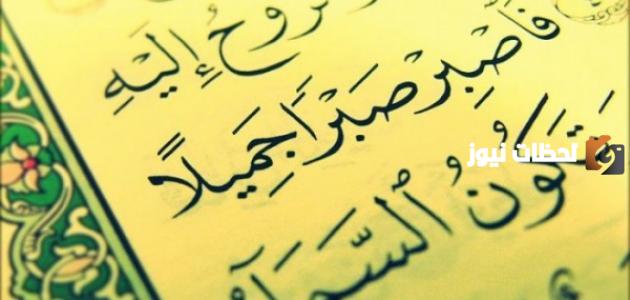 وَٱلرُّوحُ إِلَيْهِ
فَٱصْبِرْ صَبْرًا جَمِيلًا
تَكُونُ ٱلسَّمَآءُ
لحظات نيوز